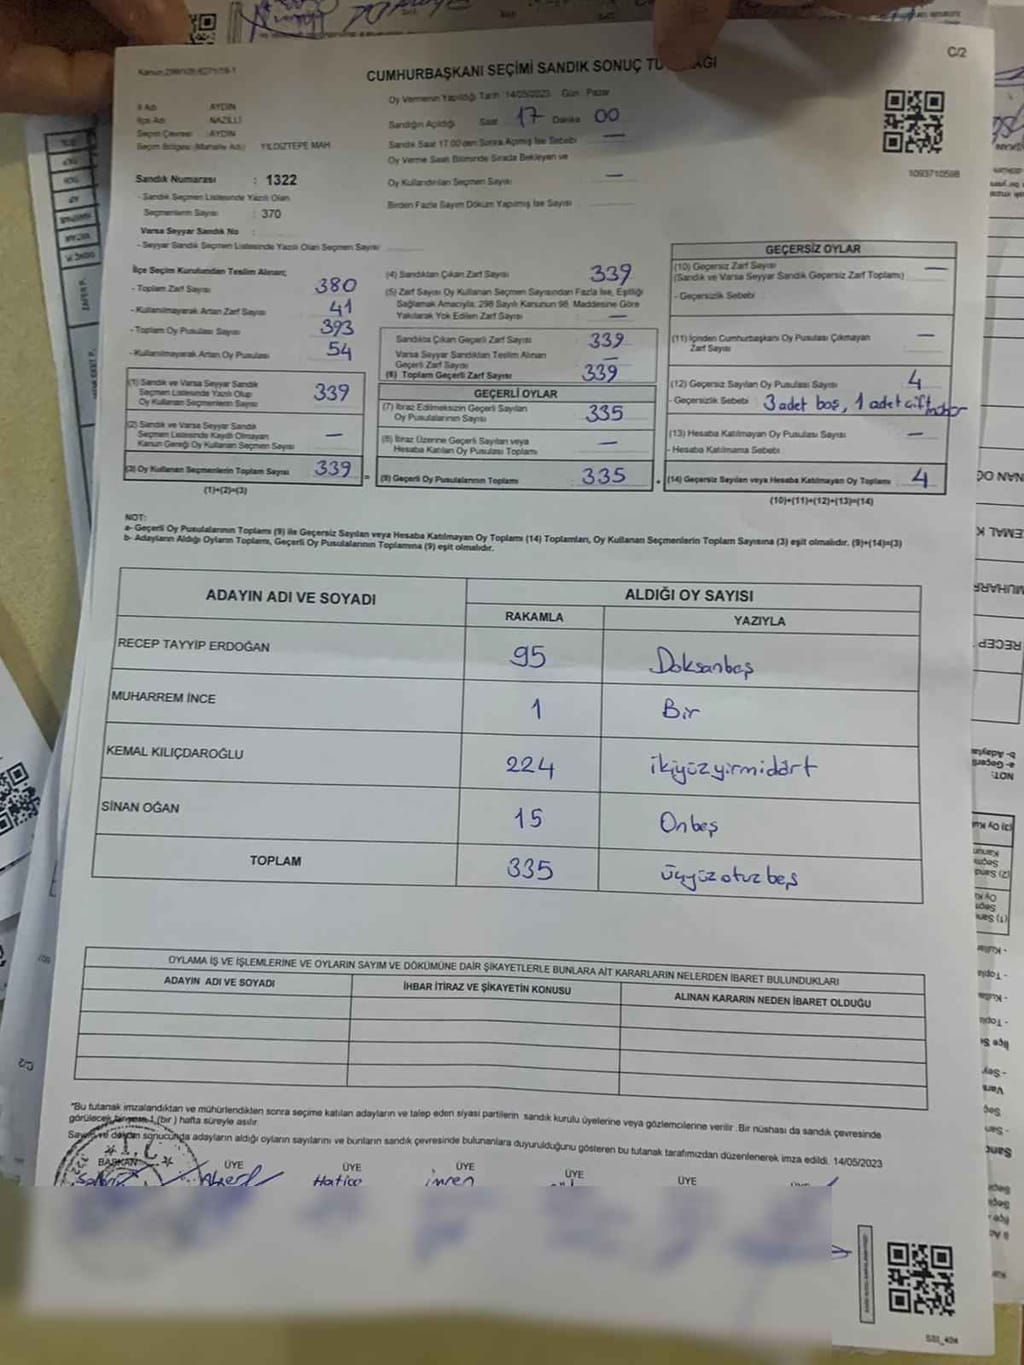 C/2
CUMHURBAŞKANI SEÇİMİ SANDIK SONUÇ
İl Adı AYDIN
İlçe Adı NAZİLLİ
Seçim Çevresi : AYDIN
Seçim Bölgesi (Mahalle Adı) YILDIZTEPE MAH
Oy Vermenin Yapıldığı Tarih 14/05/2023 Gün : Pazar
Sandığın Açıldığı Saat 17 Dakika 00
Sandık Saat 17.00'den Sonra Açılmış İse Sebebi —
Oy Verme Saati Bitiminde Sırada Bekleyen ve
Oy Kullandırılan Seçmen Sayısı —
Birden Fazla Sayım Döküm Yapılmış İse Sayısı
1093710598
Sandık Numarası : 1322
- Sandık Seçmen Listesinde Yazılı Olan
Seçmenlerin Sayısı : 370
Varsa Seyyar Sandık No :
- Seyyar Sandık Seçmen Listesinde Yazılı Olan Seçmen Sayısı
İlçe Seçim Kurulundan Teslim Alınan;
- Toplam Zarf Sayısı 380
- Kullanılmayarak Artan Zarf Sayısı 41
- Toplam Oy Pusulası Sayısı 393
- Kullanılmayarak Artan Oy Pusulası 54
(1) Sandık ve Varsa Seyyar Sandık
Seçmen Listesinde Yazılı Olup
Oy Kullanan Seçmenlerin Sayısı 339
(2) Sandık ve Varsa Seyyar Sandık
Seçmen Listesinde Kaydı Olmayan
Kanun Gereği Oy Kullanan Seçmen Sayısı —
(3) Oy Kullanan Seçmenlerin Toplam Sayısı 339 =
(1)+(2)=(3)
(4) Sandıktan Çıkan Zarf Sayısı 339
(5) Zarf Sayısı Oy Kullanan Seçmen Sayısından Fazla İse, Eşitliği
Sağlamak Amacıyla; 298 Sayılı Kanunun 98. Maddesine Göre
Yakılarak Yok Edilen Zarf Sayısı —
Sandıkta Çıkan Geçerli Zarf Sayısı 339
Varsa Seyyar Sandıktan Teslim Alınan
Geçerli Zarf Sayısı —
(6) Toplam Geçerli Zarf Sayısı 339
GEÇERLİ OYLAR
(7) İtiraz Edilmeksizin Geçerli Sayılan
Oy Pusulalarının Sayısı 335
(8) İtiraz Üzerine Geçerli Sayılan veya
Hesaba Katılan Oy Pusulası Toplamı —
(9) Geçerli Oy Pusulalarının Toplamı 335 +
GEÇERSİZ OYLAR
(10) Geçersiz Zarf Sayısı —
(Sandık ve Varsa Seyyar Sandık Geçersiz Zarf Toplamı)
- Geçersizlik Sebebi
(11) İçinden Cumhurbaşkanı Oy Pusulası Çıkmayan
Zarf Sayısı —
(12) Geçersiz Sayılan Oy Pusulası Sayısı 4
- Geçersizlik Sebebi 3 adet boş, 1 adet çift
(13) Hesaba Katılmayan Oy Pusulası Sayısı —
- Hesaba Katılmama Sebebi
(14) Geçersiz Sayılan veya Hesaba Katılmayan Oy Toplamı 4
(10)+(11)+(12)+(13)=(14)
NOT:
a- Geçerli Oy Pusulalarının Toplamı (9) ile Geçersiz Sayılan veya Hesaba Katılmayan Oy Toplamı (14) Toplamları, Oy Kullanan Seçmenlerin Toplam Sayısına (3) eşit olmalıdır. (9)+(14)=(3)
b- Adayların Aldığı Oyların Toplamı, Geçerli Oy Pusulalarının Toplamına (9) eşit olmalıdır.
ADAYIN ADI VE SOYADI
ALDIĞI OY SAYISI
RAKAMLA YAZIYLA
RECEP TAYYİP ERDOĞAN 95 Doksanbeş
MUHARREM İNCE 1 Bir
KEMAL KILIÇDAROĞLU 224 ikiyüzyirmidört
SİNAN OĞAN 15 Onbeş
TOPLAM 335 üçyüzotuzbeş
OYLAMA İŞ VE İŞLEMLERİNE VE OYLARIN SAYIM VE DÖKÜMÜNE DAİR ŞİKAYETLERLE BUNLARA AİT KARARLARIN NELERDEN İBARET BULUNDUKLARI
ADAYIN ADI VE SOYADI İHBAR İTİRAZ VE ŞİKAYETİN KONUSU ALINAN KARARIN NEDEN İBARET OLDUĞU
*Bu tutanak imzalandıktan ve mühürlendikten sonra seçime katılan adayların ve talep eden siyasi partilerin sandık kurulu üyelerine veya gözlemcilerine verilir. Bir nüshası da sandık çevresinde
görülecek bir yere 1 (bir) hafta süreyle asılır.
Sayım ve döküm sonucunda adayların aldığı oyların sayılarını ve bunların sandık çevresinde bulunanlara duyurulduğunu gösteren bu tutanak tarafımızdan düzenlenerek imza edildi. 14/05/2023
BAŞKAN ÜYE ÜYE ÜYE ÜYE ÜYE
Hatice imren